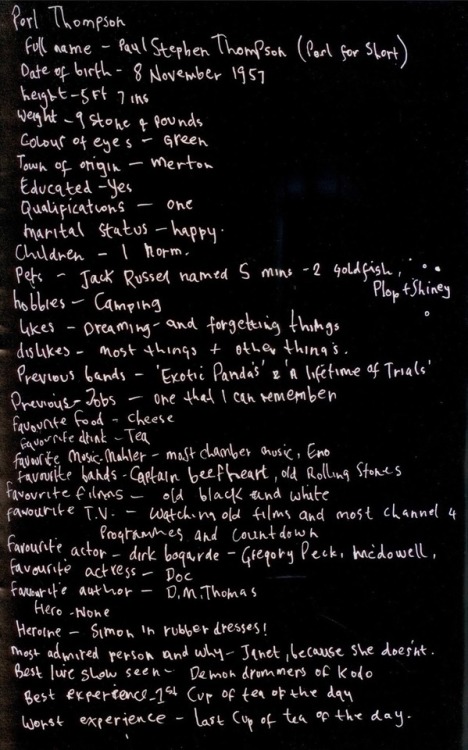 Porl Thompson
Full name - Paul Stephen Thompson (Porl for Short)
Date of birth - 8 November 1957
height - 5 Ft 7 ins
Weight - 9 Stone 4 pounds
Colour of eyes - Green
Town of origin - Merton
Educated - Yes
Qualifications - one
marital status - happy.
Children - 1 Norm.
Pets - Jack Russel named 5 mins - 2 goldfish,
Plop + Shiney
hobbies - Camping
likes - Dreaming - and forgetting things
dislikes - most things + other things.
Previous bands - 'Exotic Panda's' & 'A lifetime of Trials'
Previous - Jobs - one that I can remember
Favourite food - cheese
favourite drink - Tea
favourite Music - Mahler - most chamber music, Eno
favourite bands - Captain beefheart, old Rolling Stones
favourite films - old black and white
favourite T.V. - Watching old films and most channel 4
Programmes and Countdown
Favourite actor - dirk bogarde - Gregory Peck, mcdowell,
Favourite actress - Doc
favourite author - D.M. Thomas
Hero - None
Heroine - Simon in rubber dresses!
most admired person and why - Janet, because she does'nt.
Best live show seen - Demon drummers of Kodo
Best experience - 1st Cup of tea of the day
Worst experience - last Cup of tea of the day.